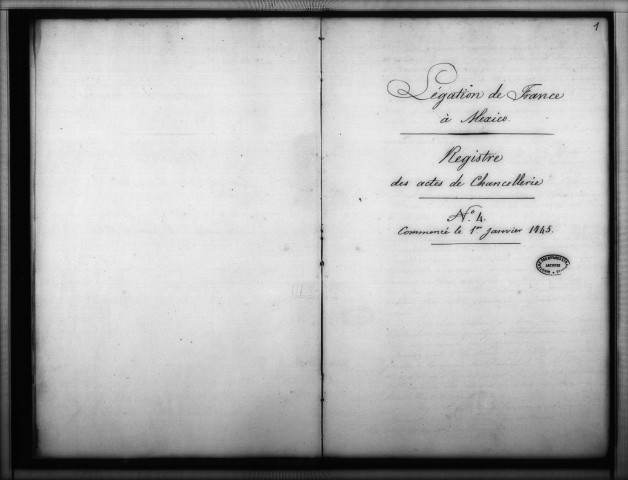 1
Légation de France
à Mexico.
Registre
des actes de Chancellerie
N.° 4.
Commencé le 1er Janvier 1845.
ARCHIVES